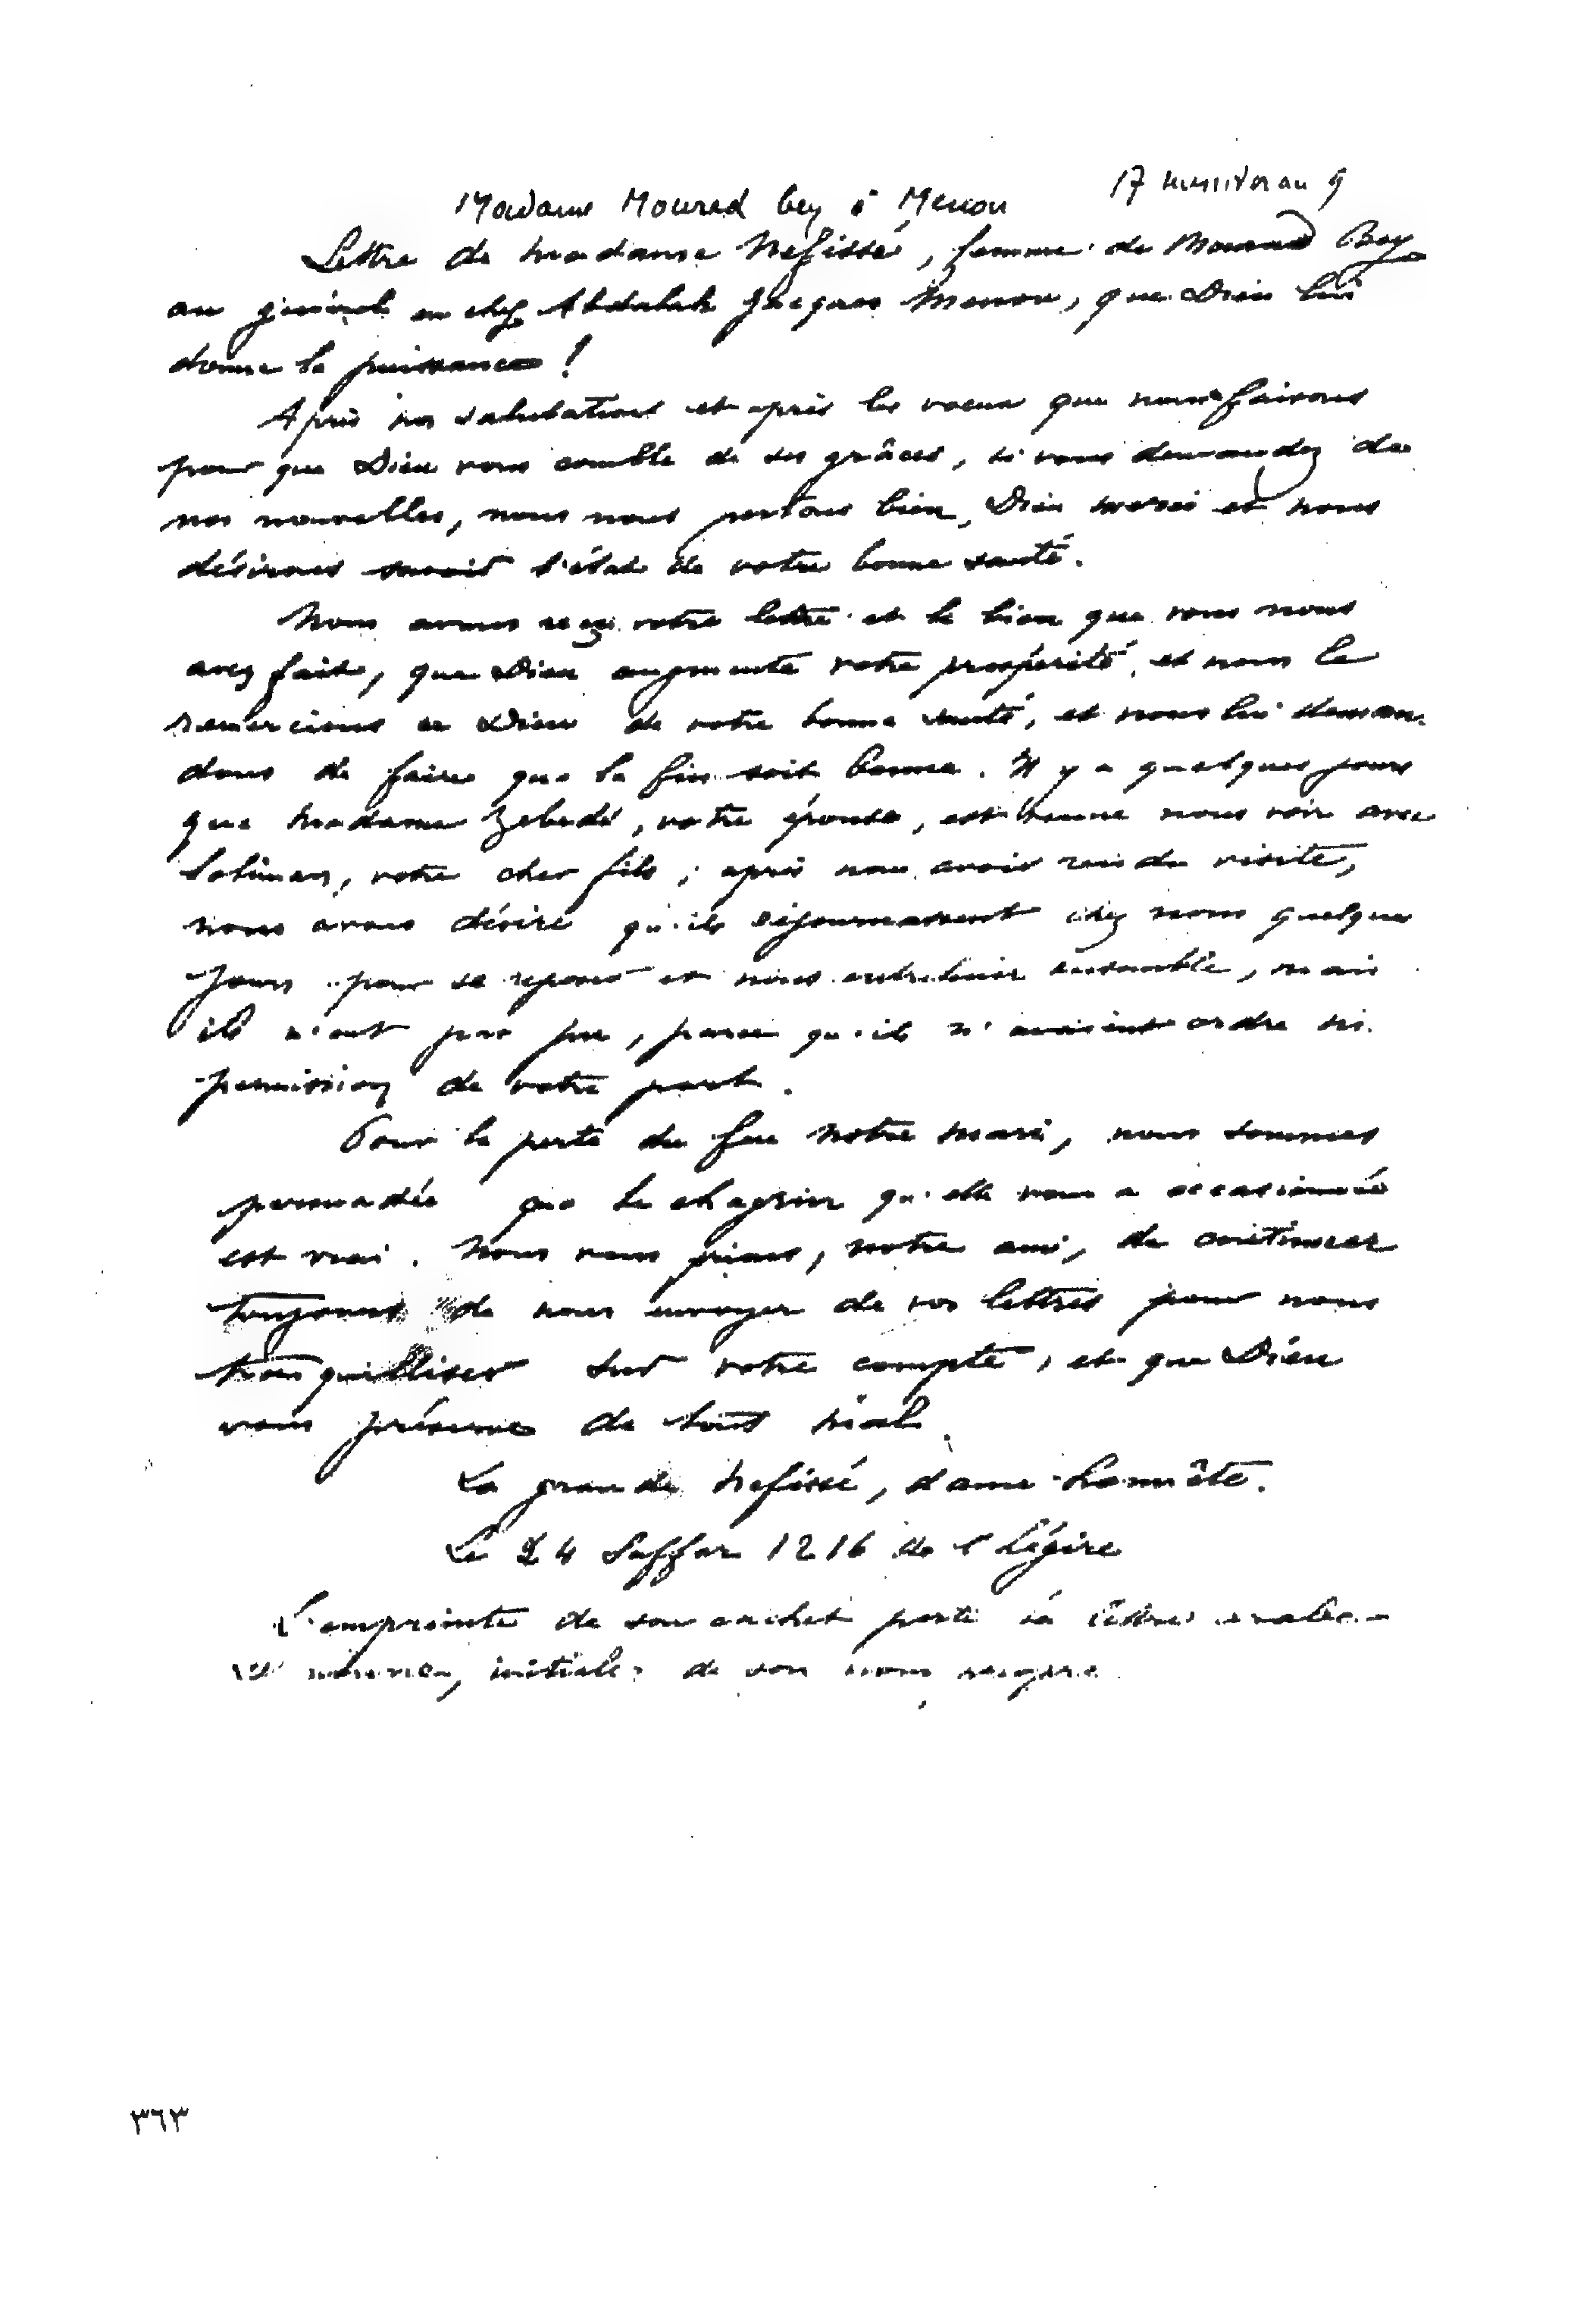 Madame Mourad bey à Menou 17 messidor an 9
Lettre de Madame Nefissé, femme de Mourad Bey
au général en chef Abdalah Jacques Menou, que Dieu lui
donne la puissance !
Après nos salutations et après les voeux que nous faisons
pour que Dieu vous comble de ses grâces, si vous demandez de
nos nouvelles, nous nous portons bien, Dieu merci et nous
désirons savoir l'état de votre bonne santé.
Nous avons reçu votre lettre et le bien que vous nous
avez fait, que Dieu augmente votre prospérité, et nous le
remercions de votre bonne santé, et nous lui deman-
dons de faire que la fin soit bonne. Il y a quelques jours
que Madame Zebedé, votre épouse, est venue nous voir avec
Soliman, votre cher fils ; après nous avoir rendu visite,
nous avons désiré qu'ils séjournassent chez nous quelques
jours pour se reposer et nous entretenir ensemble, mais
ils n'ont pas pu, parce qu'ils n'avaient ordre ni
permission de votre part.
Pour la perte du feu notre mari, nous sommes
persuadée que le chagrin qu'elle vous a occasionnée
est vrai. Nous vous prions, notre ami, de continuer
toujours de nous envoyer de vos lettres pour nous
tranquilliser sur votre compte, et que Dieu
vous préserve de tout mal.
La grande Nefissé, dame honnête.
Le 24 Saffar 1216 de l'hégire
L'empreinte de son cachet porte lettres
initiales de son nom
٣٦٣